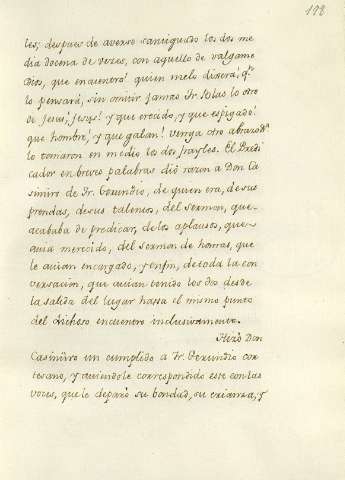 198
les; despues de averse santiguado los dos me
dia docena de vezes, con aquello de valgame
Dios, que encuentro! quien melo dixera, qn
lo pensara, sin omitir jamas Fr. Blas lo otro
de Jesus, Jesus! y que crecido, y que espigado!
que hombre! y que galan! venga otro abrazo
lo tomaron en medio los dos frayles. El Predi
cador en breves palabras dió razon a Don Ca
simiro de Fr. Gerundio, de quien era, de sus
prendas, de sus talentos, del sermon, que
acababa de predicar, de los aplausos, que
avia merecido, del sermon de honras, que
le avian encargado, y enfin, de toda la con
versacion, que avian tenido los dos desde
la salida del lugar hasta el mismo punto
del dichoso encuentro inclusivamente.
Hizo Don
Casimiro un cumplido a Fr. Gerundio cor
tesano, y aviendole correspondido este con las
voces, que le deparó su bondad, su crianza, y